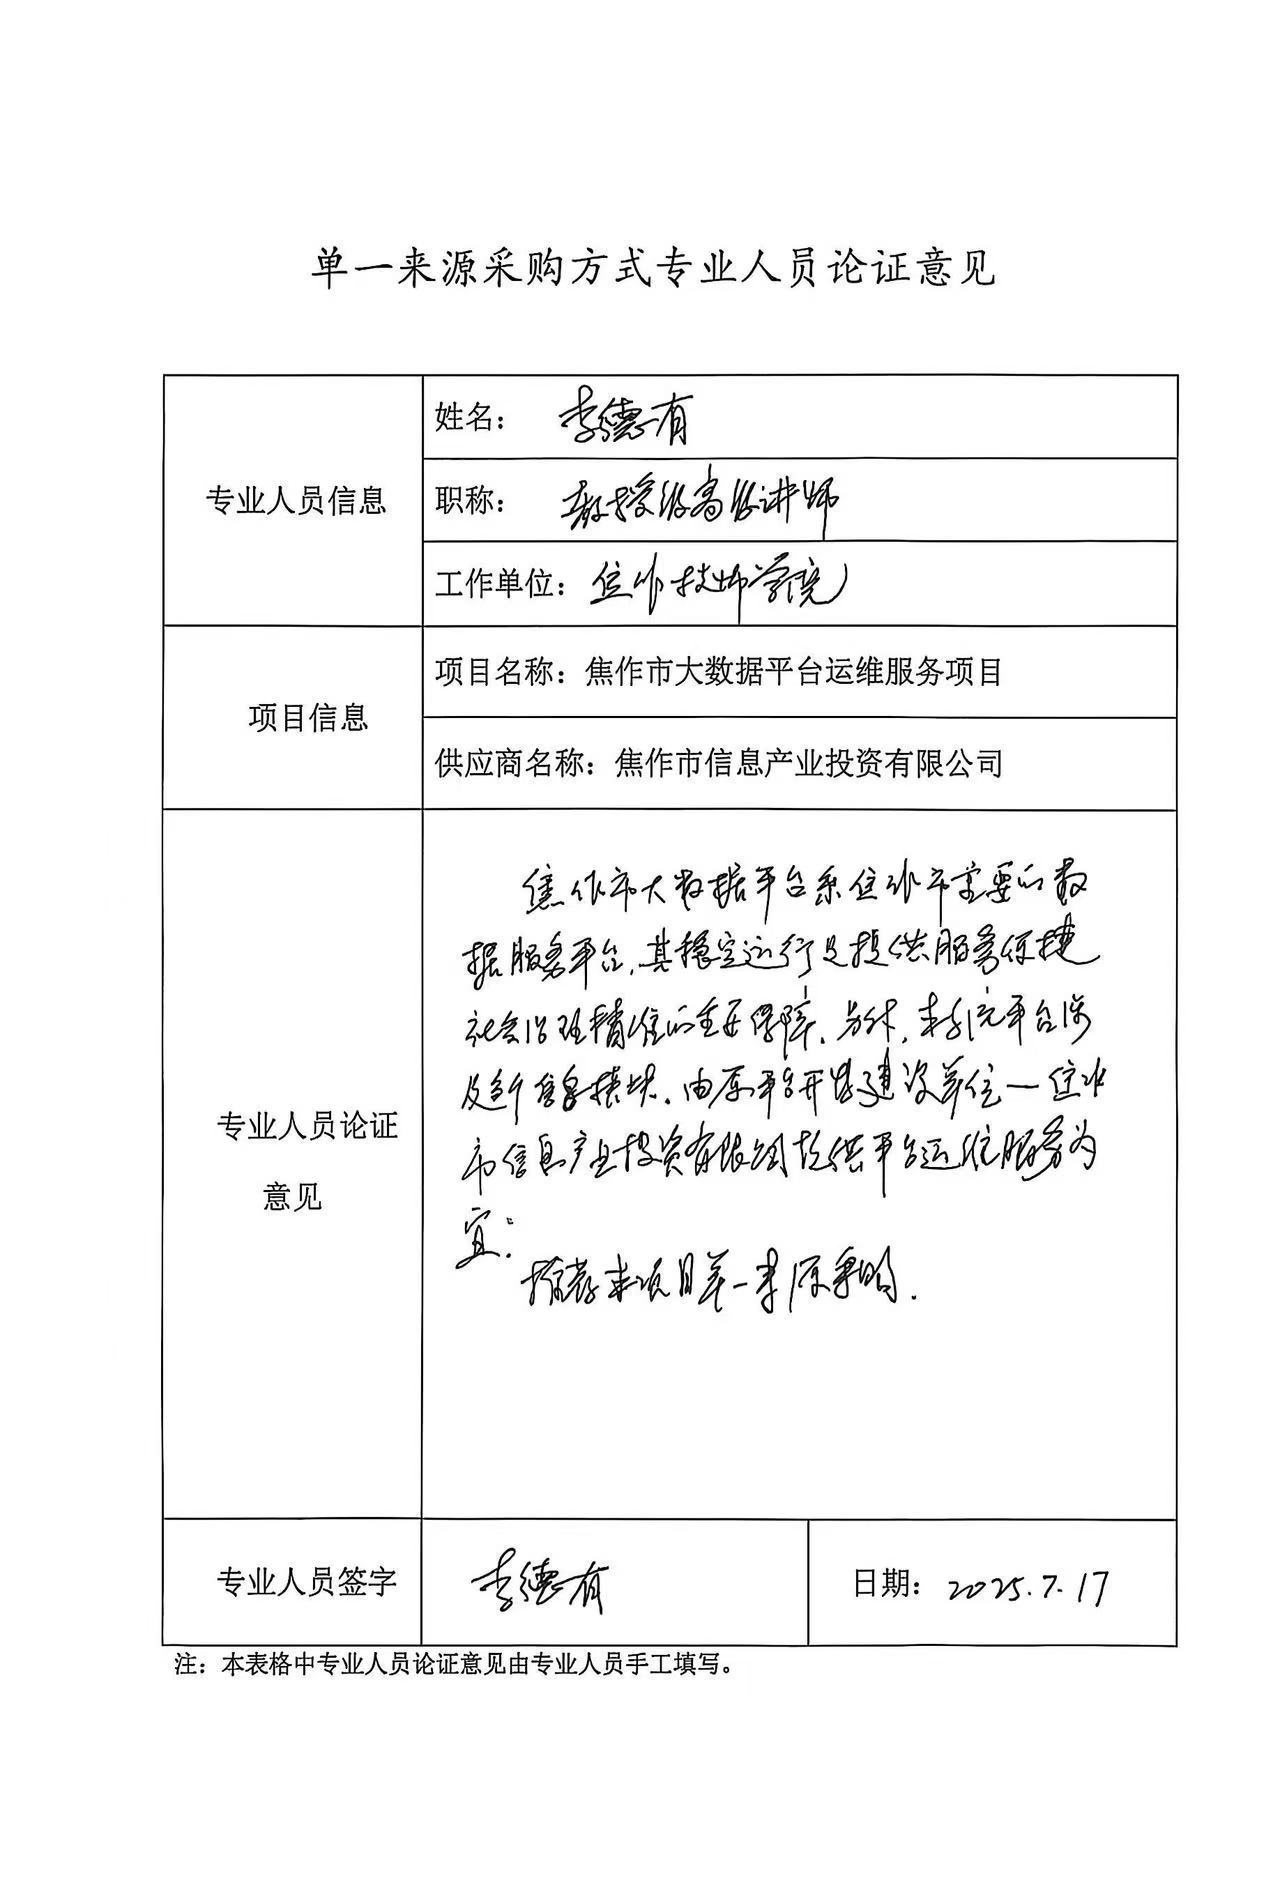 单一来源采购方式专业人员论证意见
专业人员信息
姓名： 李德有
职称： 教授级高级讲师
工作单位：焦作技师学院
项目信息
项目名称：焦作市大数据平台运维服务项目
供应商名称：焦作市信息产业投资有限公司
专业人员论证
意见
焦作市大数据平台系焦作市重要的数
据服务平台，其稳定运行是提供服务便捷
社会治理精准的重要保障。另外，本系统平台涉
及多个模块，由原平台开发建设单位一焦作
市信息产业投资有限公司提供平台运维服务为
宜。
推荐本项目单一来源采购。
专业人员签字
李德有
日期：2025.7.17
注：本表格中专业人员论证意见由专业人员手工填写。